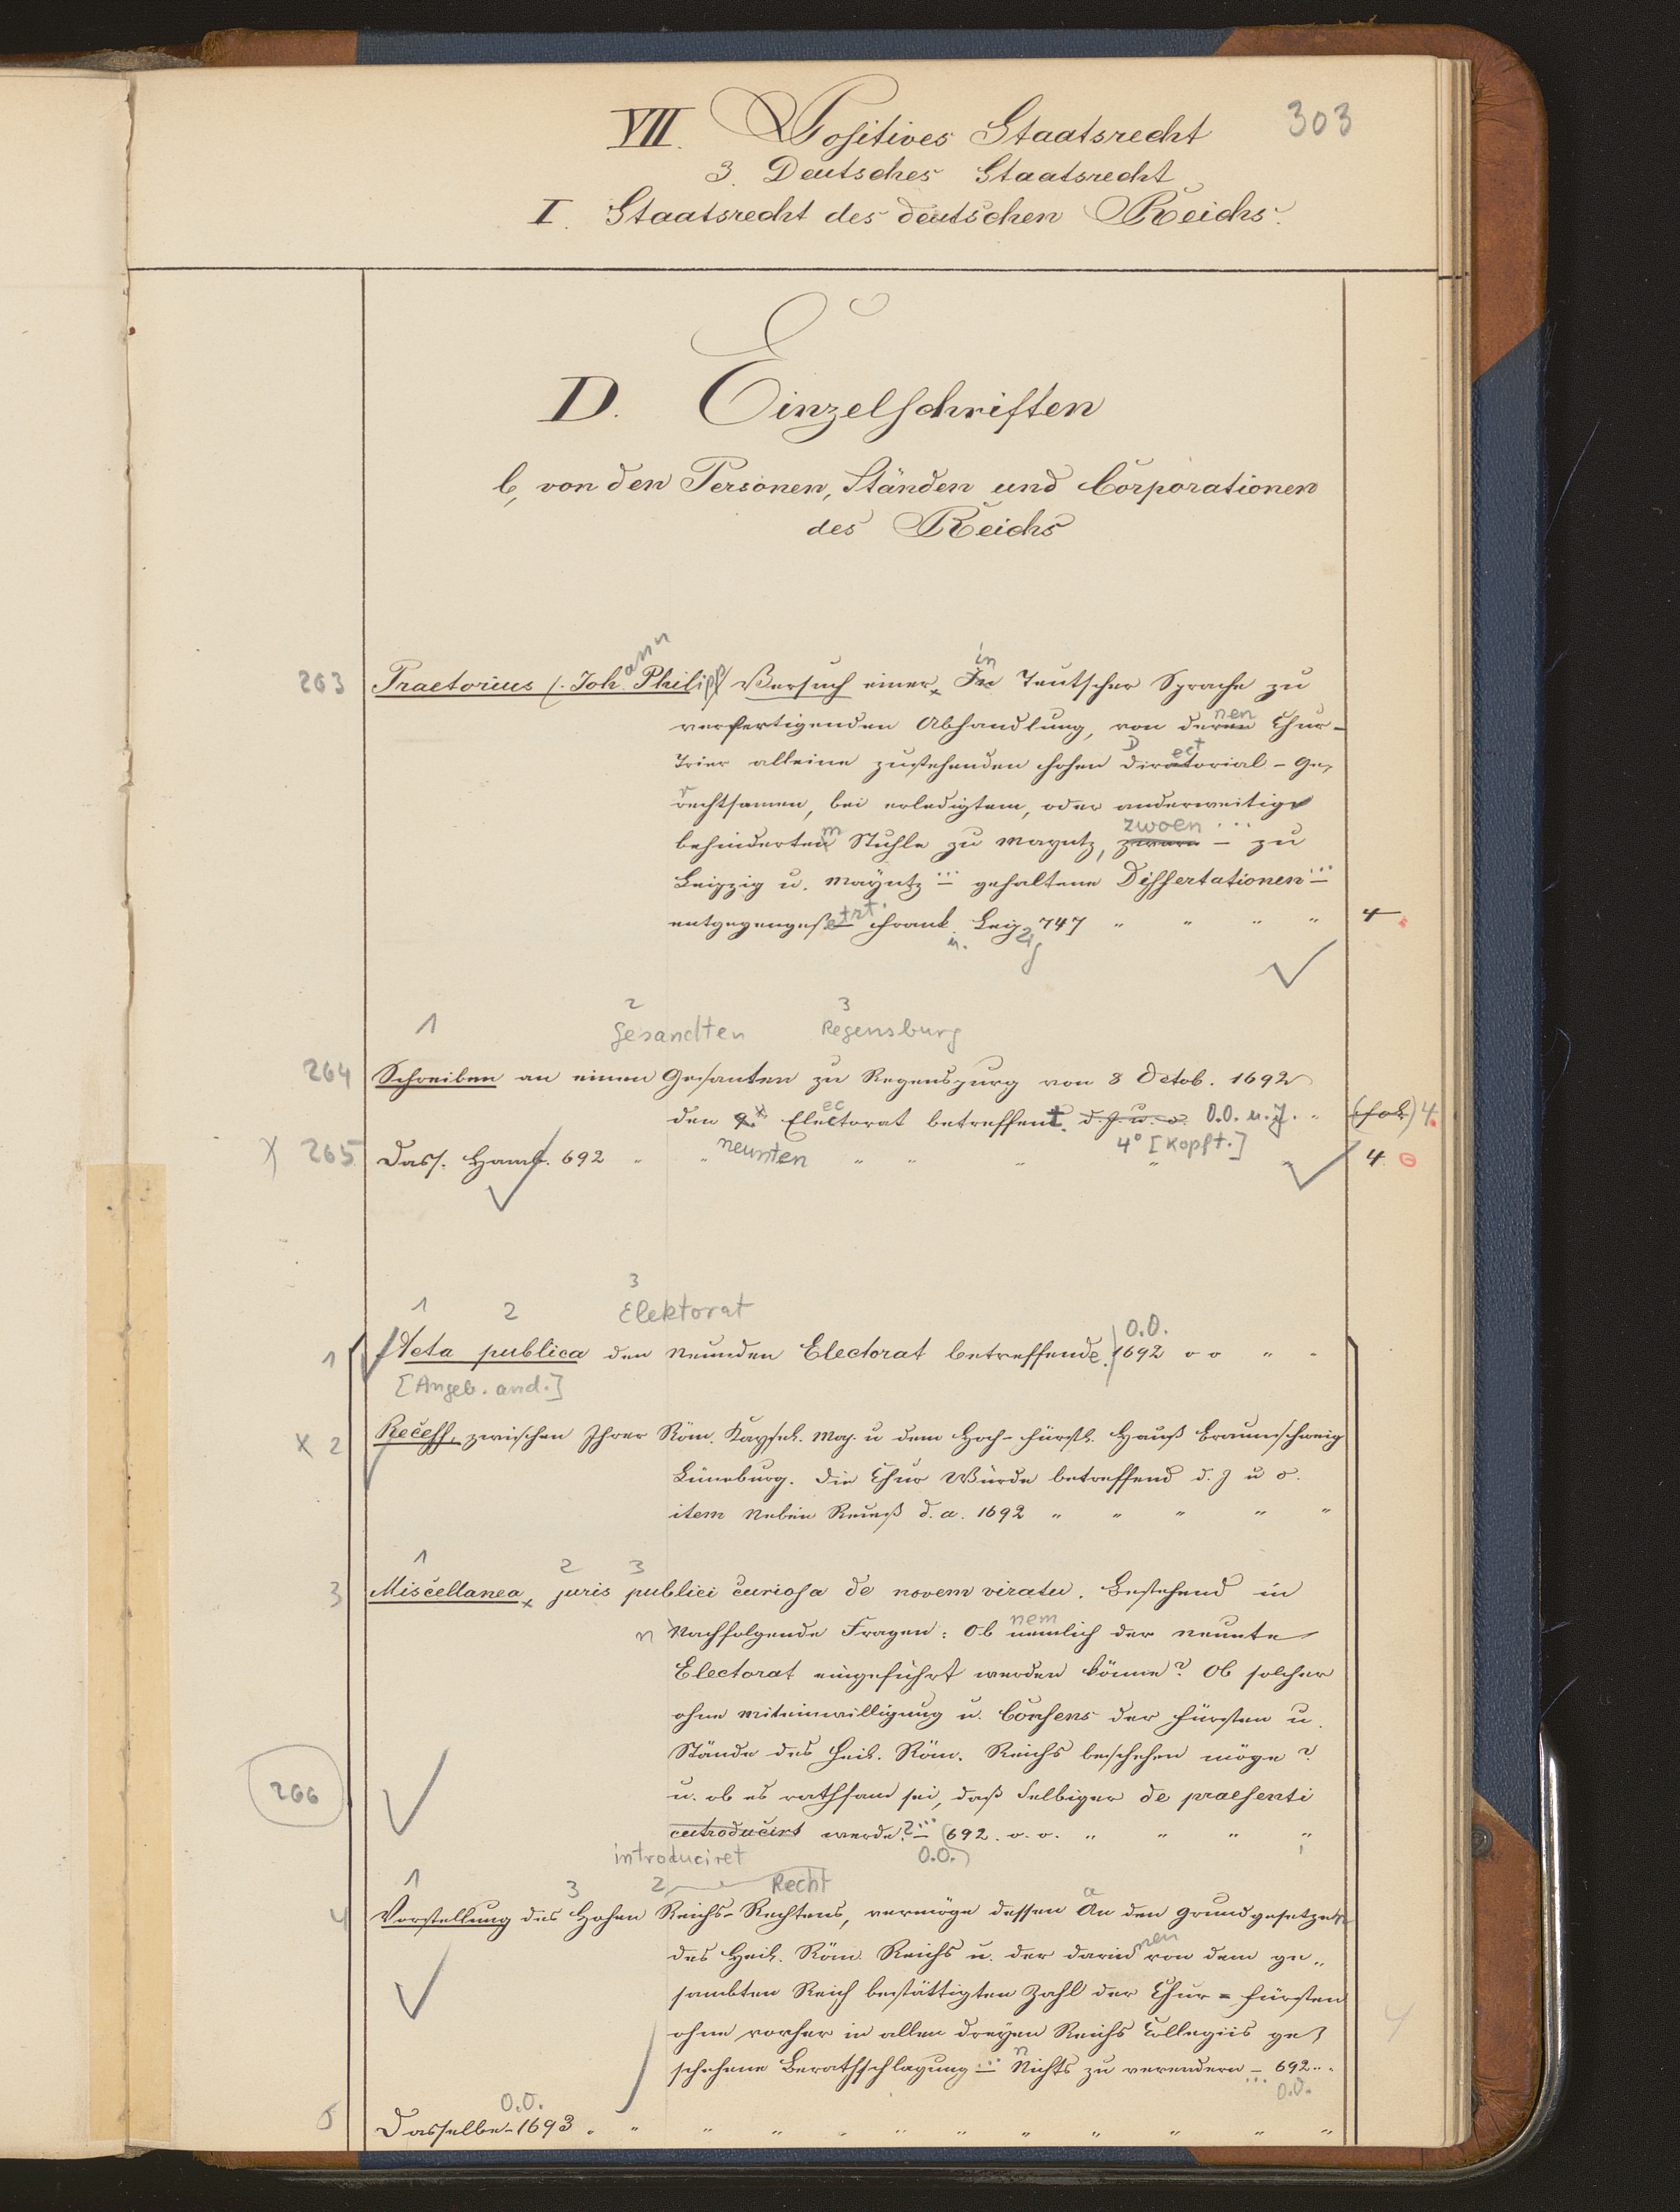 303
VII. Positives Staatsrecht
3. Deutsches Staatsrecht
I. Staatsrecht des deutschen Reichs.
D. Einzelschriften
b, von den Personen, Ständen und Corporationen
des Reichs
ann in
263 Praetorius /. Joh. Philipp Versuch einer In Teutscher Sprache zu
nen
verfertigenden Abhandlung, von deren Chur-
D ect
Trier alleine zustehenden hohen Diratorial - Ge,
r
rechtsamen, bei erledigtem, oder anderweitige
m zwoen ...
behinderten Stuhle zu Mayntz, - zu
Leipzig u. Mayntz ... gehaltene Dissertationen ...
etzt.
entgegengese Frank. Leipz 747 " " " " 4
u. zg
1 2 3
Gesandten Regensburg
264 Schreiben an einen Gesanten zu Regenspurg von 8 Octob. 1692
ec
den 9t Electorat betreffent. d. J. u. o. O.O. u. J. " (fol.) 4.
neunten 4° [Kopft.]
X 265 Dass. Hamb. 692 " " " " " " " 4.
1 2 3
Elektorat O.O.
1 Acta publica den Neunden Electorat betreffende. 1692 o o " "
[Angeb. and.]
X 2 Recess, zwischen Ihrer Röm. Kaysel. May. u dem Hoch-Fürstl. Hauß Braunschweig
Lüneburg. die Chur Würde betreffend d. J u o.
item Neben Receß d. a. 1692 " " " " "
1 2 3
3 Miscellanea juris publici curiosa de novem viratu. Bestehend in
n nem
Nachfolgende Fragen: Ob nemlich der neunte
Electorat eingeführt werden könne? Ob solcher
ohne Miteinwilligung u. Consens der Fürsten u.
Stände des Heil. Röm. Reichs beschehen möge?
266 u. ob es rathsam sei, daß Selbiger de praesenti
cutroducirt werde? ... (692. o. o. " " " "
introduciret O.O.)
1 3 2 Recht a
4 Vorstellung des Hohen Reichs-Rechtens, vermöge dessen An den Grundgesetzen
nen
des Heil. Röm. Reichs u. der darin von dem ge"
sambten Reich bestättigten Zahl der Chur = Fürsten
4
ohne vorher in allen dreyen Reichs Collegiis ge
n
schehene Berathschlagung ... Nichts zu verendern - 692 " .
... O.O.
O.O.
5 Dasselbe - 1693 . " " " " " " " " " " "